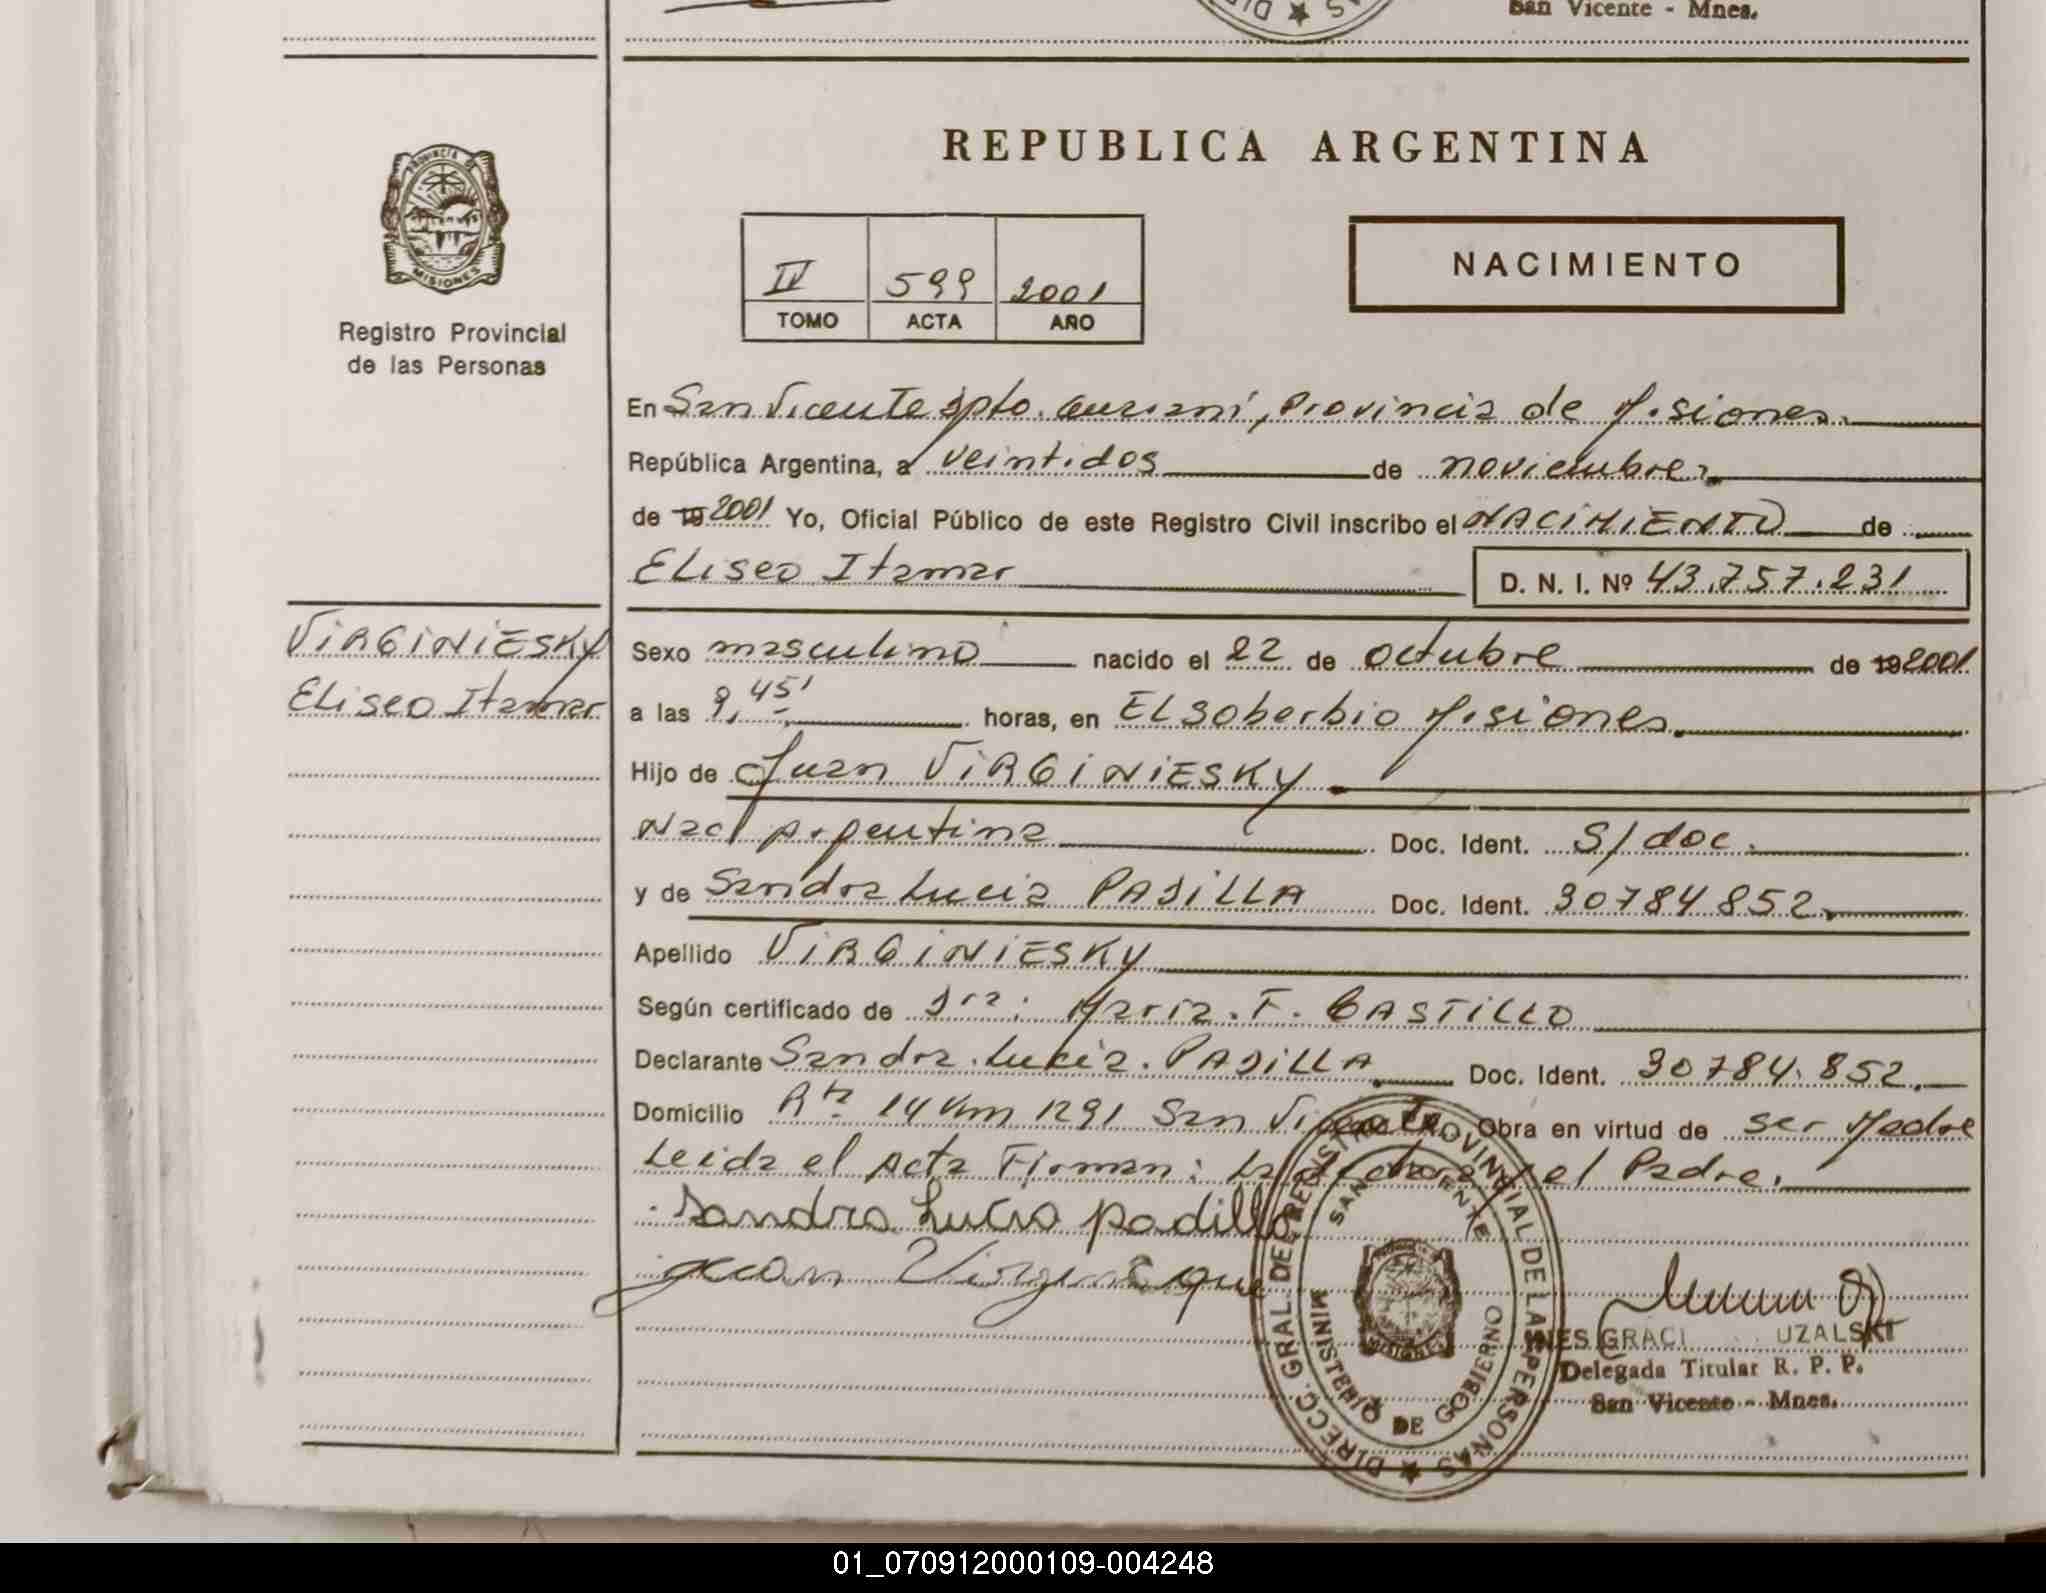 San Vicente - Mnes.
REPUBLICA ARGENTINA
PROVINCIA DE
MISIONES
Registro Provincial
de las Personas
IV 599 2001
TOMO ACTA AÑO
NACIMIENTO
En San Vicente Dpto. Guaraní, Provincia de Misiones.
República Argentina, a veintidos de noviembre
de 19 2001 Yo, Oficial Público de este Registro Civil inscribo el NACIMIENTO de
Eliseo Itamar D. N. I. Nº 43.757.231
VIRGINIESKY
Eliseo Itamar
Sexo masculino nacido el 22 de octubre de 19 2001
a las 9,45' horas, en El Soberbio Misiones.
Hijo de Juan VIRGINIESKY
Nac Argentina Doc. Ident. S/doc.
y de Sandra Lucia PADILLA Doc. Ident. 30784852.
Apellido VIRGINIESKY
Según certificado de Dra: Maria. F. CASTILLO
Declarante Sandra. Lucia. PADILLA Doc. Ident. 30784.852.
Domicilio Rta 14 Km 1291 San Vicente. Obra en virtud de ser Madre
Leida el Acta Firman: la y el Padre.
Sandra Lucia Padilla
Juan
DIRECC. GRAL. DEL REGISTRO PROVINCIAL DE LAS PERSONAS
SAN VICENTE
MISIONES
MINISTERIO DE GOBIERNO
INES GRACI UZALSKI
Delegada Titular R. P. P.
San Vicente - Mnes.
01_070912000109-004248